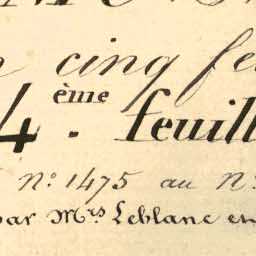 cinq fe
4ème. feuill
n.º 1475 au n.º
par Mrs Leblanc en